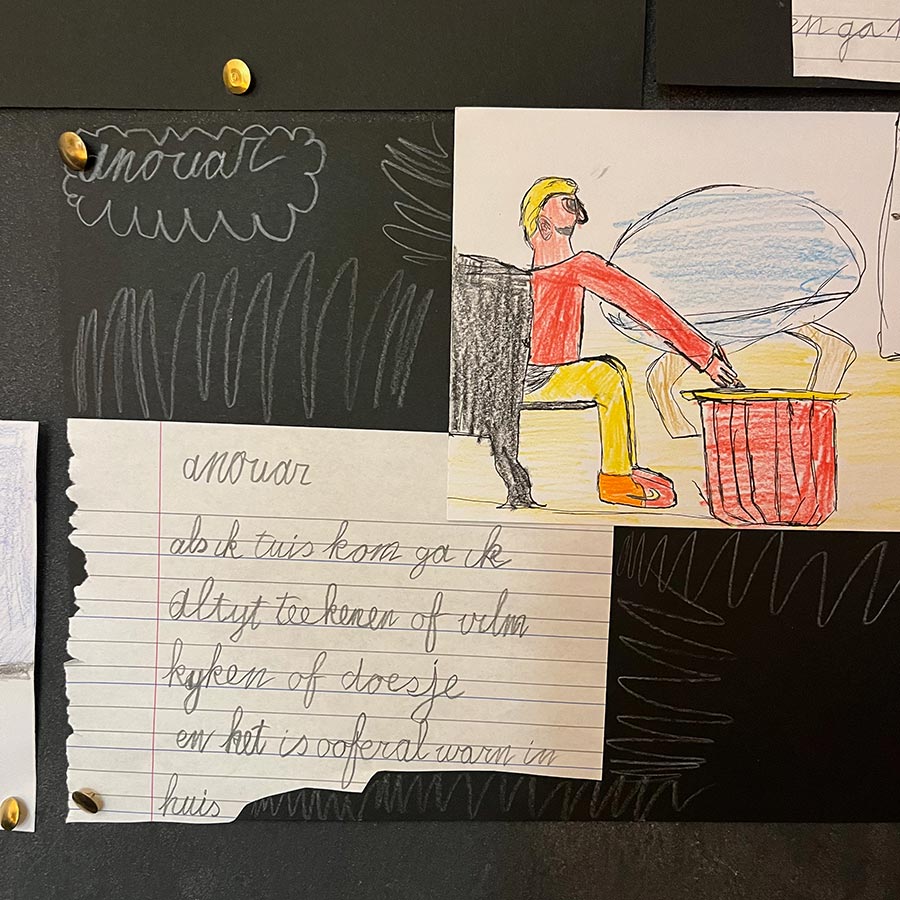 en ga
anouar
anouar
als ik tuis kom ga ik
altyt teekenen of vilm
kyken of doesje
en het is ooferal warn in
huis